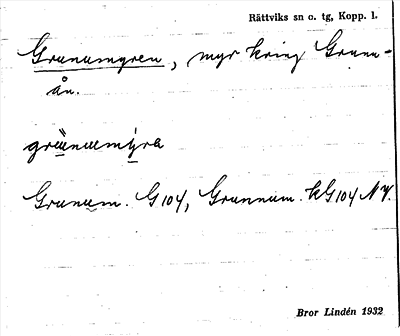 Rättviks sn o. tg, Kopp. l.
Grunumyren, myr kring Grunu-
ån.
Grunum. G104, Grunnum. kG104 NV.
Bror Lindén 1932